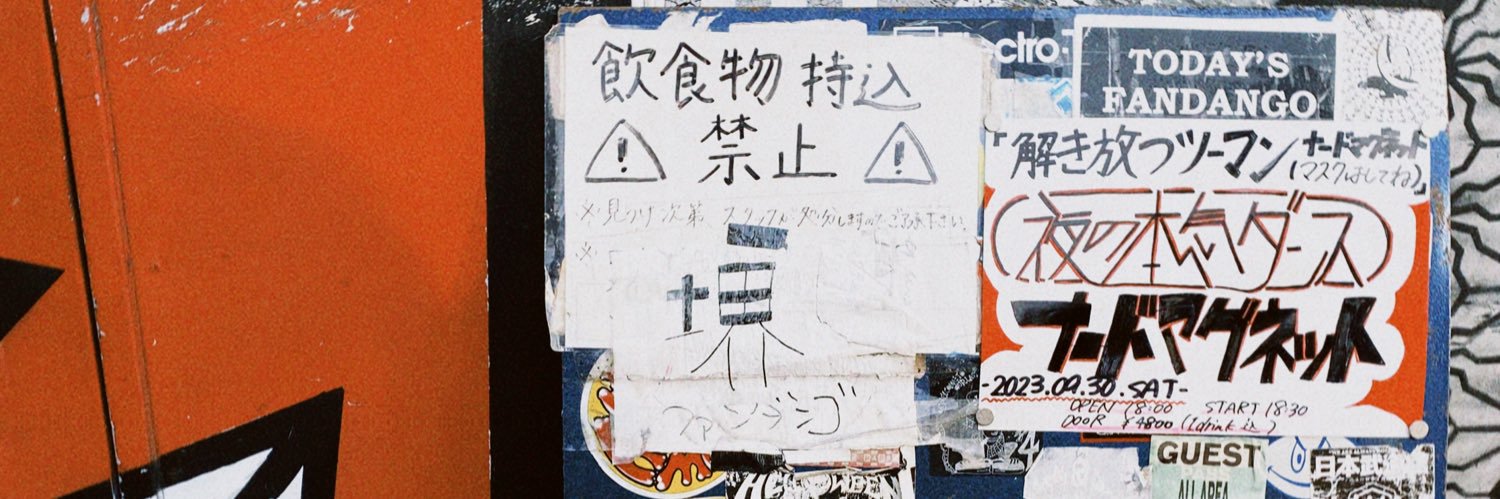 飲食物 持込
禁止
※見つけ次第 スタッフが処分しますのでご了承下さい。
※
堺
ファンダンゴ
ctro-
TODAY'S
FANDANGO
「解き放つツーマン ナードマグネット
(マスクはしてね)」
夜の本気ダンス
ナードマグネット
-2023.09.30.SAT-
OPEN 18:00 START 18:30
DOOR ¥4800 (1drink in)
4
HELLOWEEN
GUEST
ALL AREA
日本武道館